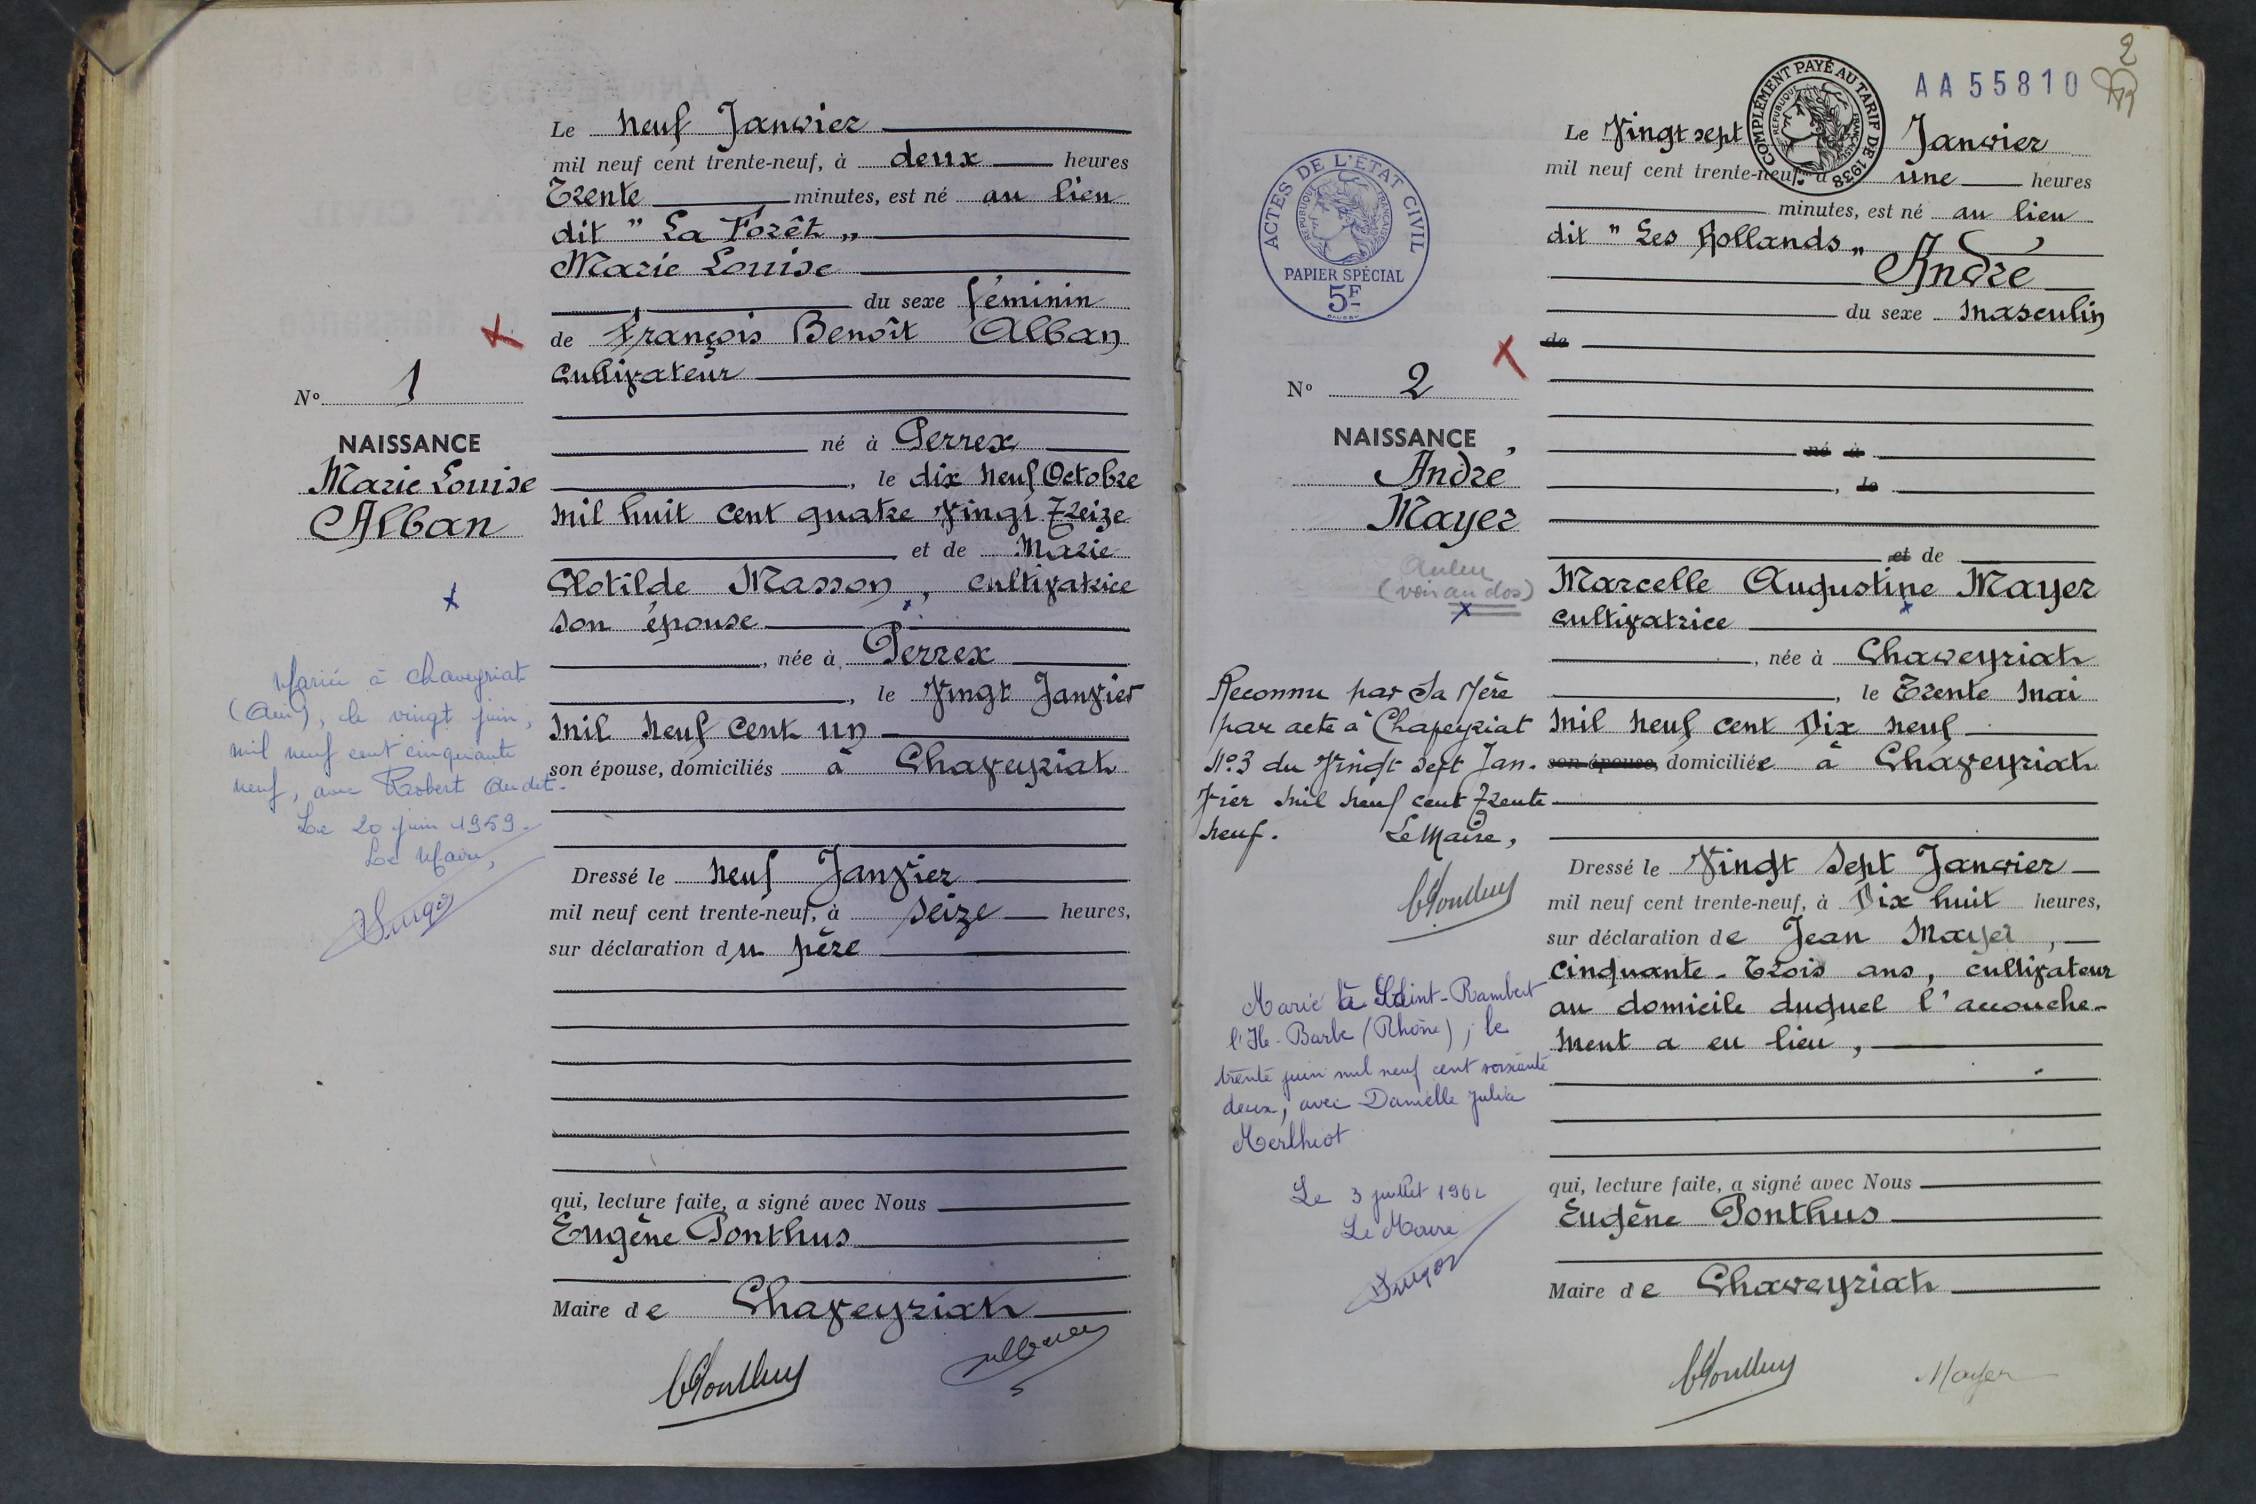 Le neuf Janvier
mil neuf cent trente-neuf, à deux heures
Trente minutes, est né au lieu
dit " La Forêt "
Marie Louise
du sexe féminin
de François Benoît Alban
cultivateur
né à Perrex
, le dix neuf Octobre
mil huit cent quatre vingt Treize
et de Marie
Clotilde Masson, cultivatrice
son épouse
, née à Perrex
, le vingt Janvier
mil neuf cent un
son épouse, domiciliés à Chaveyriat
Dressé le neuf Janvier
mil neuf cent trente-neuf, à seize heures,
sur déclaration du père
qui, lecture faite, a signé avec Nous
Eugène Ponthus
Maire de Chaveyriat
No 1
NAISSANCE
Marie Louise
Alban
Mariée à Chaveyriat
(Ain), le vingt juin,
mil neuf cent cinquante
neuf, avec Robert Audet.
Le 20 juin 1959.
Le Maire,
2
AA55810
COMPLÉMENT PAYÉ AU TARIF DE 1938
RÉPUBLIQUE FRANÇAISE
ACTES DE L'ÉTAT CIVIL
RÉPUBLIQUE FRANÇAISE
PAPIER SPÉCIAL
5F
Le Vingt sept Janvier
mil neuf cent trente-neuf, à une heures
minutes, est né au lieu
dit " Les Rollands "
André
du sexe masculin
de
né à
, le
et de
Marcelle Augustine Mayer
cultivatrice
, née à Chaveyriat
, le Trente mai
mil neuf cent Dix neuf
son épouse, domiciliée à Chaveyriat
Dressé le Vingt sept Janvier
mil neuf cent trente-neuf, à Dix huit heures,
sur déclaration de Jean Mayer,
cinquante-Trois ans, cultivateur
au domicile duquel l'accouche-
ment a eu lieu,
qui, lecture faite, a signé avec Nous
Eugène Ponthus
Maire de Chaveyriat
Mayer
No 2
NAISSANCE
André
Mayer
(voir au dos)
Reconnu par sa Mère
par acte à Chaveyriat
No 3 du Vingt sept Jan-
vier mil neuf cent Trente
neuf. Le Maire,
Marié à Saint-Rambert
l'Ile-Barbe (Rhône), le
trente juin mil neuf cent soixante
deux, avec Danielle Julia
Merlhiot
Le 3 juillet 1962
Le Maire